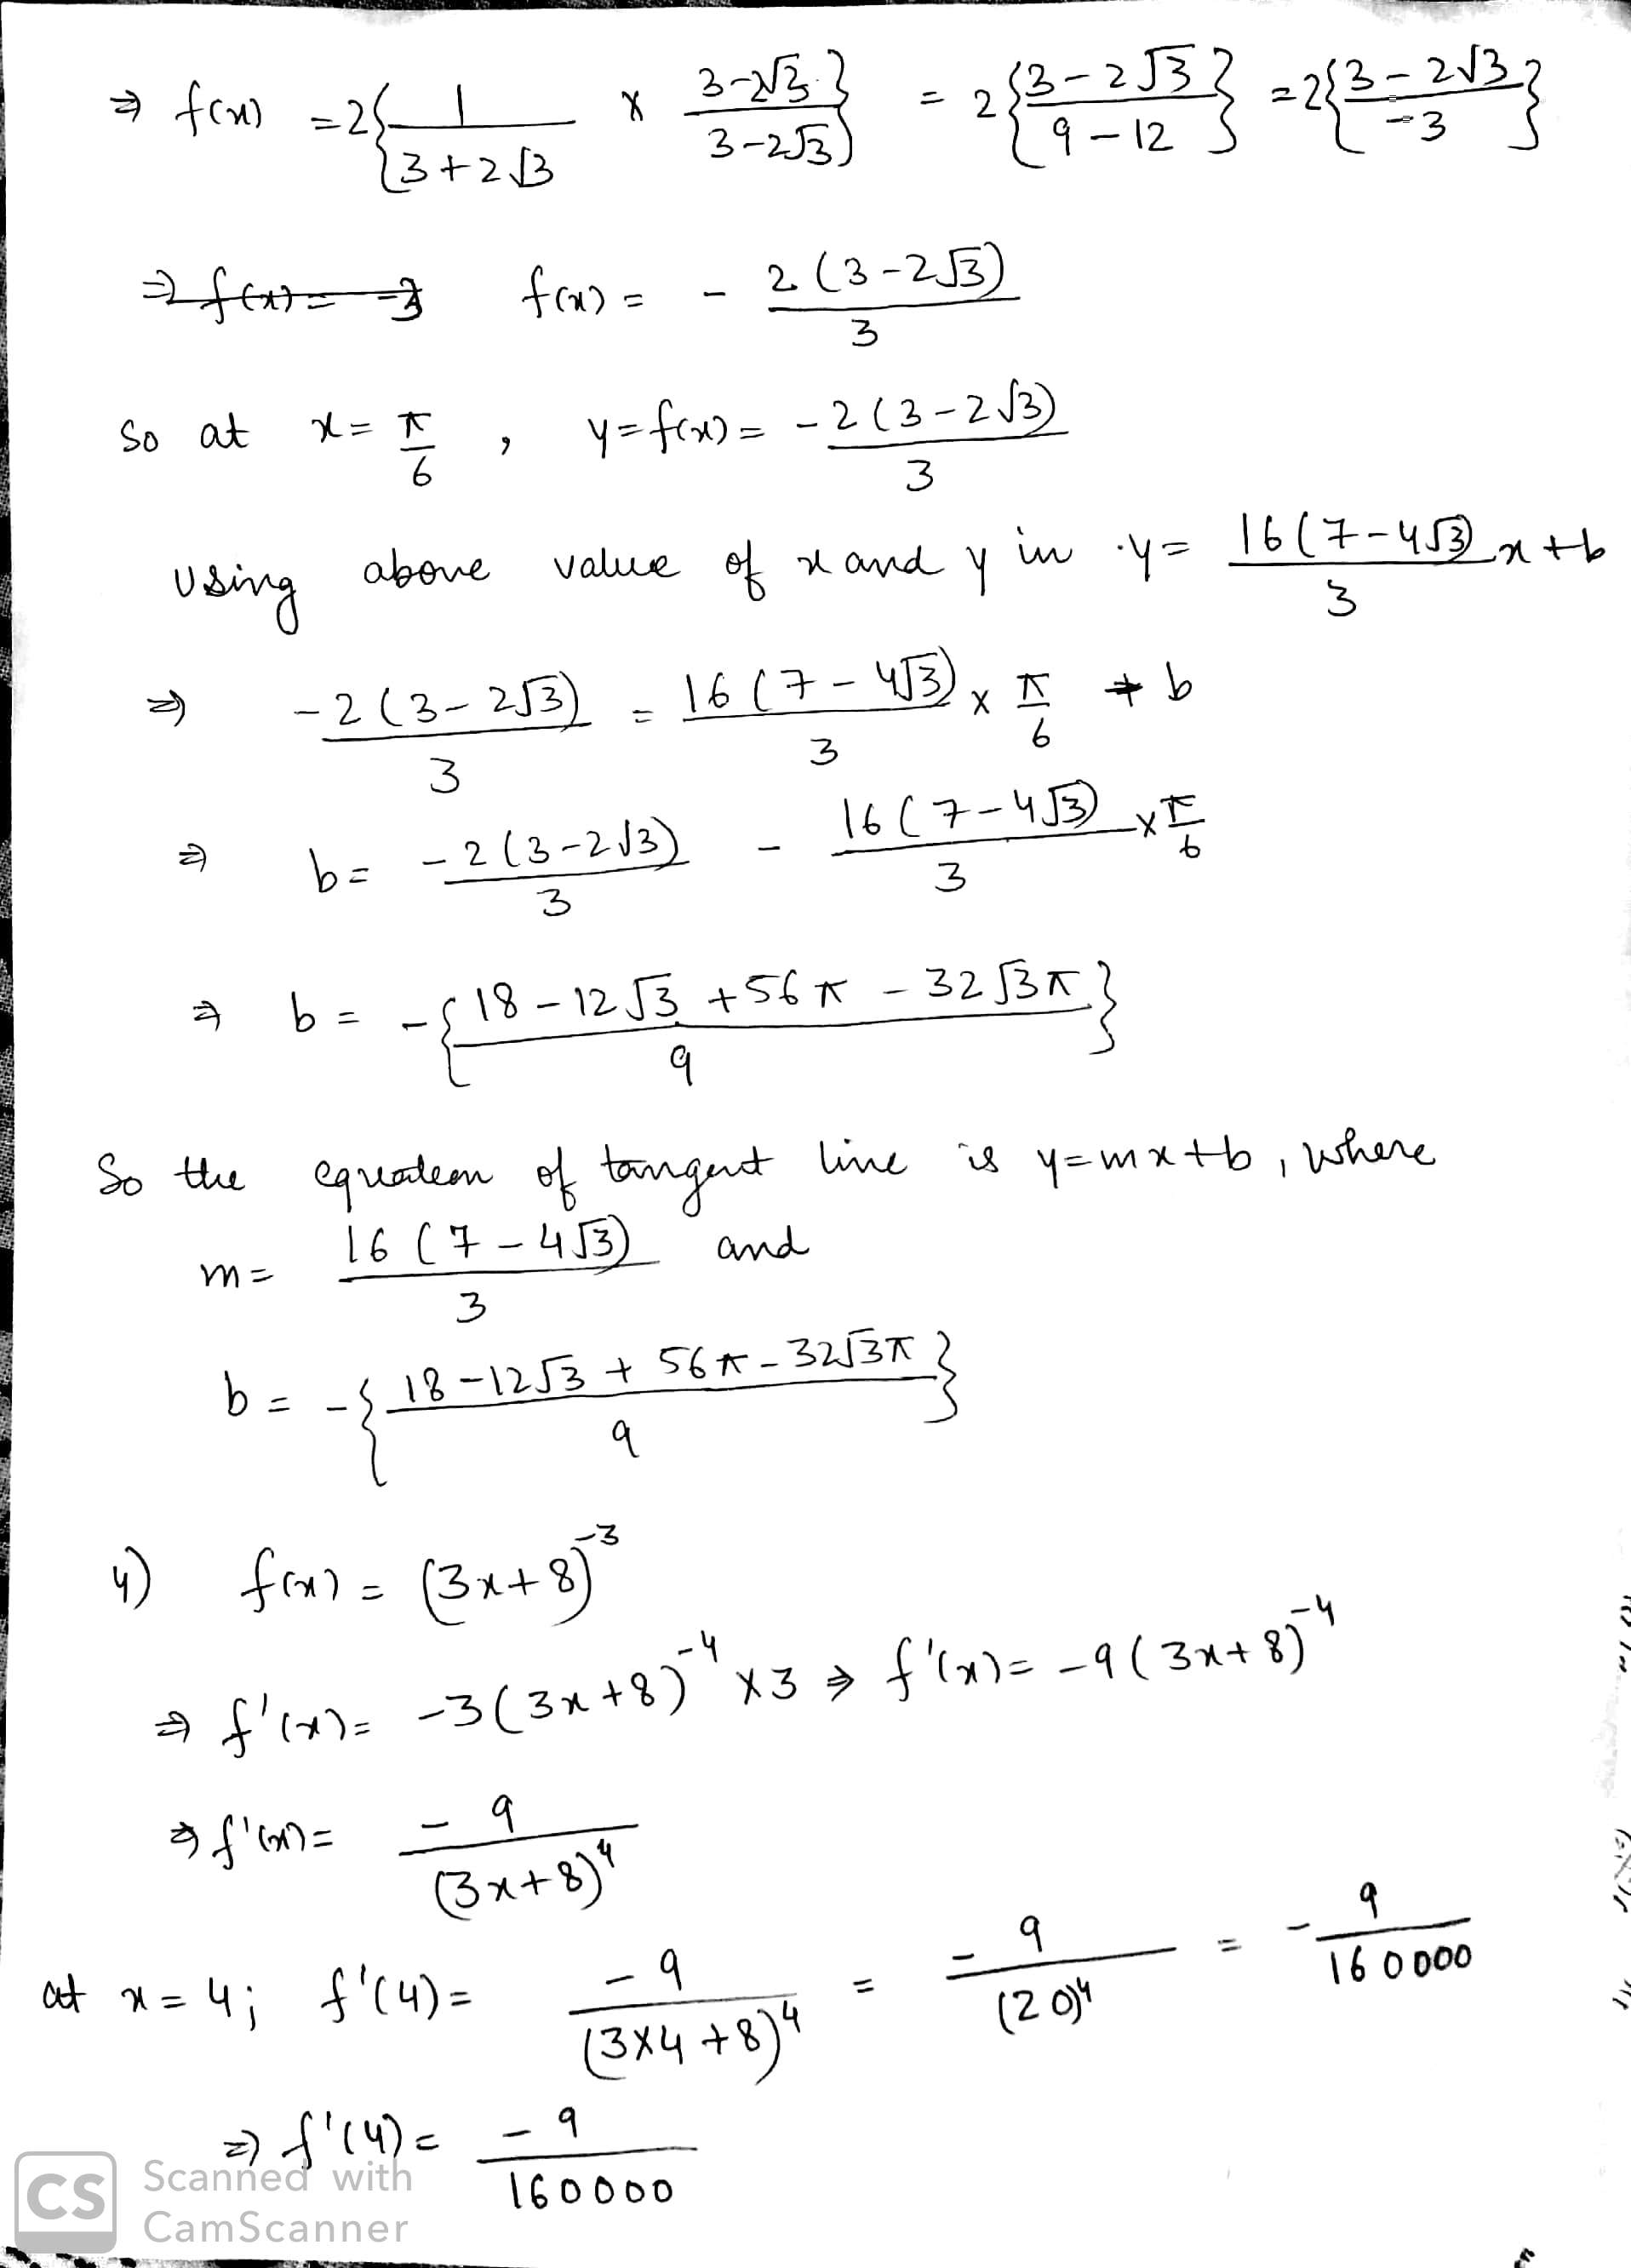 ⇒ f(x) = 2{1/(3+2√3) × (3-2√3)/(3-2√3)} = 2{(3-2√3)/(9-12)} = 2{(3-2√3)/-3}
⇒ f(x) = -2/3 f(x) = - 2(3-2√3)/3
So at x = π/6 , y = f(x) = -2(3-2√3)/3
Using above value of x and y in y = 16(7-4√3)/3 x + b
⇒ -2(3-2√3)/3 = 16(7-4√3)/3 × π/6 + b
⇒ b = -2(3-2√3)/3 - 16(7-4√3)/3 × π/6
⇒ b = -{(18-12√3+56π-32√3π)/9}
So the equation of tangent line is y=mx+b, where
m = 16(7-4√3)/3 and
b = -{(18-12√3+56π-32√3π)/9}
4) f(x) = (3x+8)⁻³
⇒ f'(x) = -3(3x+8)⁻⁴ × 3 ⇒ f'(x) = -9(3x+8)⁻⁴
⇒ f'(x) = -9/(3x+8)⁴
at x = 4; f'(4) = -9/(3×4+8)⁴ = -9/(20)⁴ = -9/160000
⇒ f'(4) = -9/160000
CS Scanned with
CamScanner